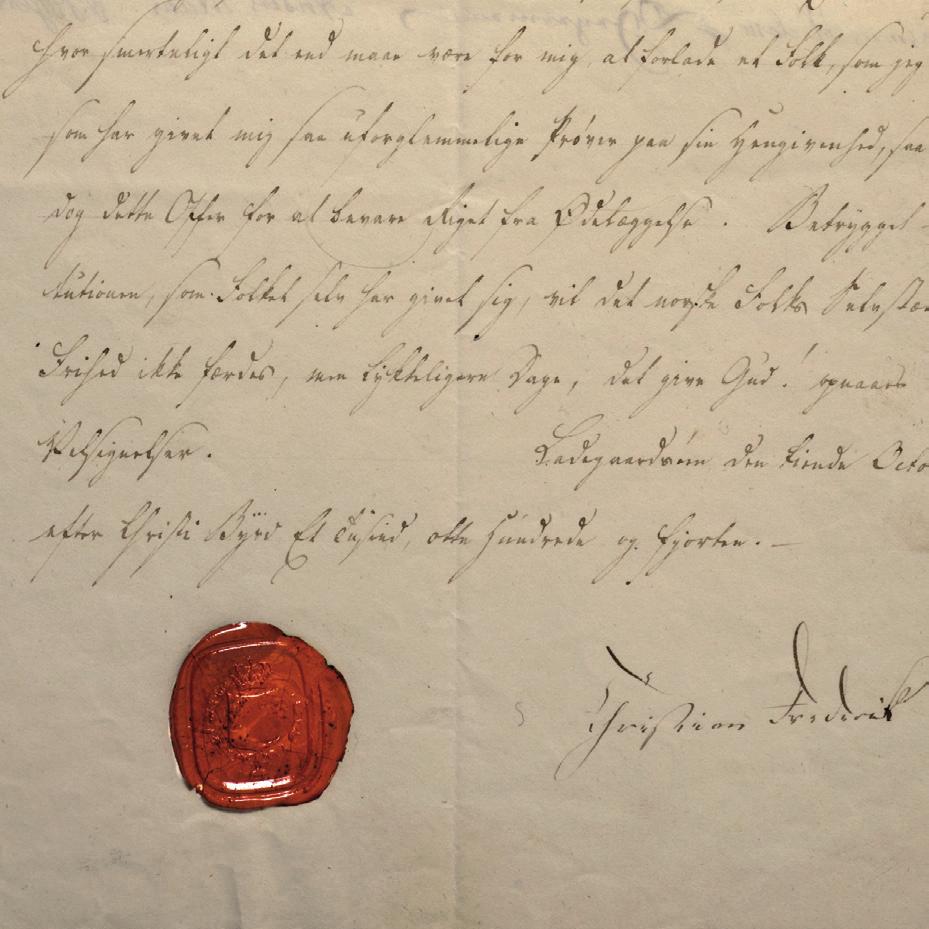 Hvor smerteligt det end maae være for mig, at forlade et Folk, som jeg
som har givet mig saa uforglemmelige Prøver paa sin Hengivenhed, saa
dog dette Offer for at bevare Riget fra Ødelæggelse. Betrygget
stutionen, som Folket selv har givet sig, vil det norske Folks Selvstæn
Frihed ikke færdes, men lykkeligere Dage, det give Gud! opnaaes
Velsignelser. Ladegaardsøen den tiende Octo
efter Christi Byrd Et Tusind, otte Hundrede og fjorten. —
Christian Frederik